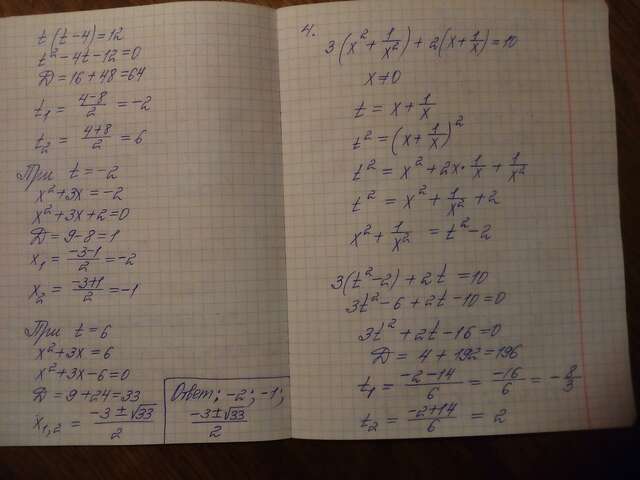 t(t-4)=12
t²-4t-12=0
D=16+48=64
t₁ = (4-8)/2 = -2
t₂ = (4+8)/2 = 6
При t=-2
x²+3x=-2
x²+3x+2=0
D=9-8=1
x₁ = (-3-1)/2 = -2
x₂ = (-3+1)/2 = -1
При t=6
x²+3x=6
x²+3x-6=0
D=9+24=33
x₁,₂ = (-3±√33)/2
Ответ: -2; -1;
(-3±√33)/2
4.
3(x²+1/x²)+2(x+1/x)=10
x≠0
t=x+1/x
t²=(x+1/x)²
t²=x²+2x·1/x+1/x²
t²=x²+1/x²+2
x²+1/x²=t²-2
3(t²-2)+2t=10
3t²-6+2t-10=0
3t²+2t-16=0
D=4+192=196
t₁ = (-2-14)/6 = -16/6 = -8/3
t₂ = (-2+14)/6 = 2